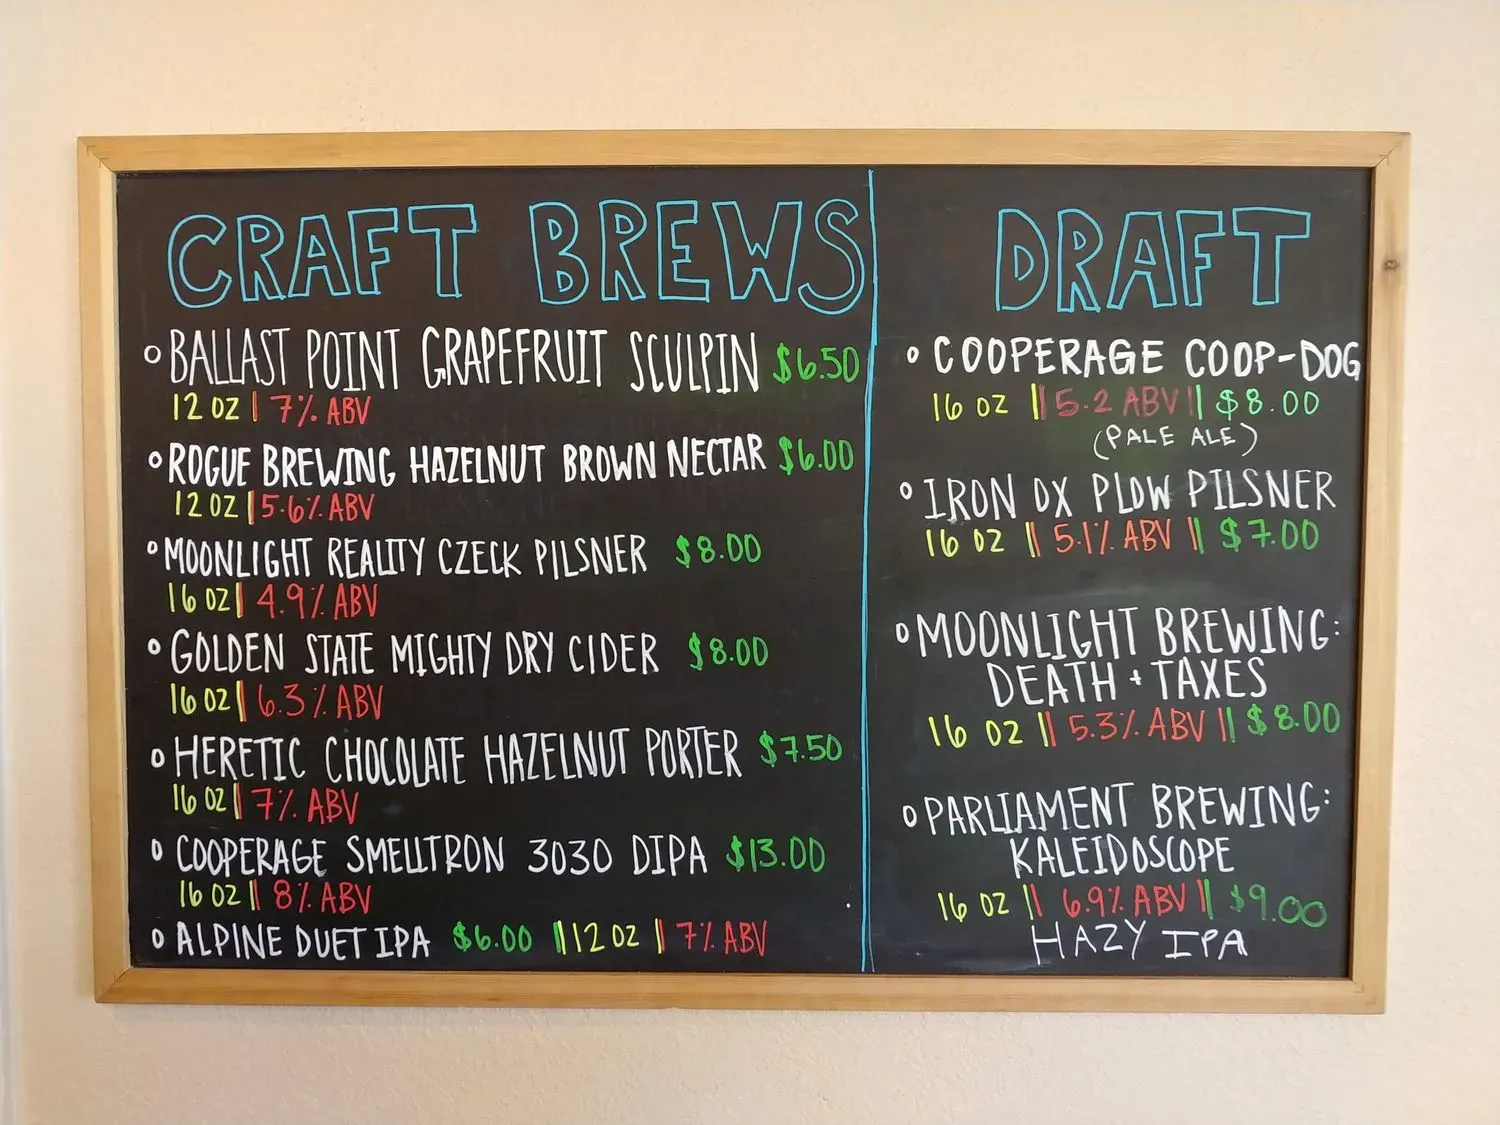 CRAFT BREWS
BALLAST POINT GRAPEFRUIT SCULPIN $6.50
12 OZ | 7% ABV
ROGUE BREWING HAZELNUT BROWN NECTAR $6.00
12 OZ | 5.6% ABV
MOONLIGHT REALITY CZECK PILSNER $8.00
16 OZ | 4.9% ABV
GOLDEN STATE MIGHTY DRY CIDER $8.00
16 OZ | 6.3% ABV
HERETIC CHOCOLATE HAZELNUT PORTER $7.50
16 OZ | 7% ABV
COOPERAGE SMELLTRON 3030 DIPA $13.00
16 OZ | 8% ABV
ALPINE DUET IPA $6.00 || 12 OZ | 7% ABV
DRAFT
COOPERAGE COOP-DOG
16 OZ || 5.2 ABV || $8.00
(PALE ALE)
IRON OX PLOW PILSNER
16 OZ || 5.1% ABV || $7.00
MOONLIGHT BREWING:
DEATH + TAXES
16 OZ || 5.3% ABV || $8.00
PARLIAMENT BREWING:
KALEIDOSCOPE
16 OZ || 6.9% ABV || $9.00
HAZY IPA